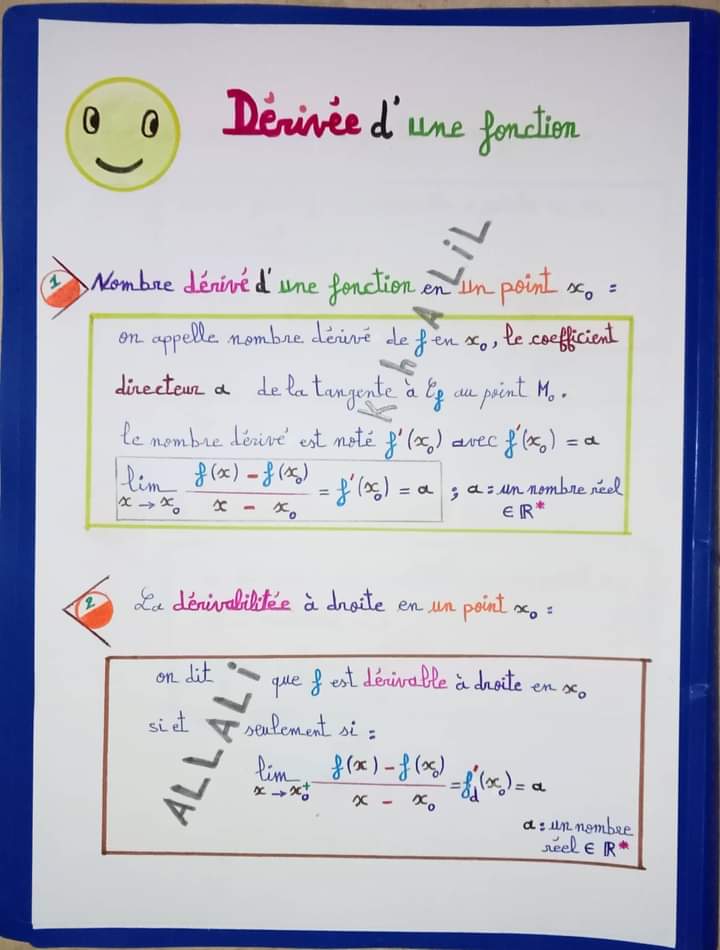 Dérivée d' une fonction
1 Nombre dérivé d'une fonction en un point x₀ :
on appelle nombre dérivé de f en x₀, le coefficient
directeur a de la tangente à Cf au point M₀.
le nombre dérivé est noté f'(x₀) avec f'(x₀) = a
lim x → x₀ (f(x) - f(x₀)) / (x - x₀) = f'(x₀) = a ; a : un nombre réel
∈ ℝ*
Khalil
2 La dérivabilitée à droite en un point x₀ :
on dit que f est dérivable à droite en x₀
si et seulement si :
lim x → x₀⁺ (f(x) - f(x₀)) / (x - x₀) = f'd(x₀) = a
a : un nombre
réel ∈ ℝ*
ALLALi